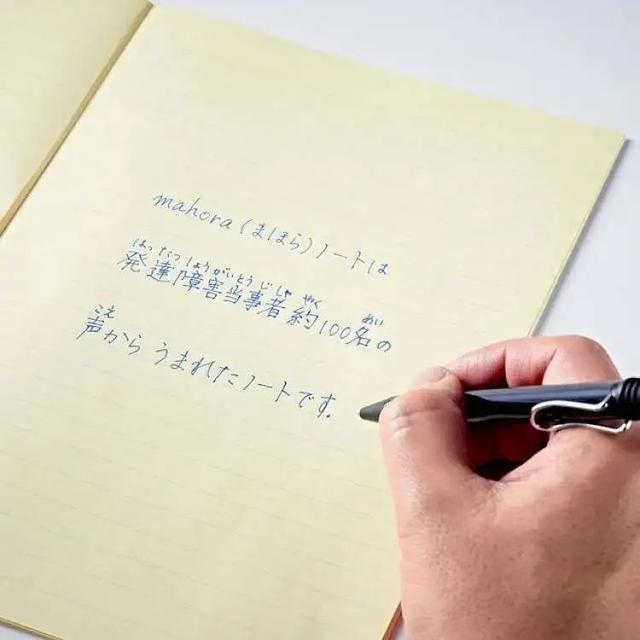 mahora(まほら)ノートは
はったつしょうがいとうじしゃ やく めい
発達障害当事者約100名の
こえ
声からうまれたノートです。